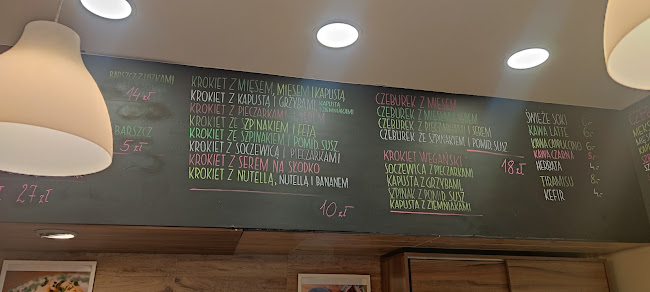 BARSZCZ Z USZKAMI
14 zł
BARSZCZ
5 zł
27 zł
KROKIET Z MIĘSEM, MIĘSEM I KAPUSTĄ
KROKIET Z KAPUSTĄ I GRZYBAMI KAPUSTĄ ZIEMNIAKAMI
KROKIET Z PIECZARKAMI
KROKIET ZE SZPINAKIEM I FETĄ
KROKIET ZE SZPINAKIEM I POMID. SUSZ
KROKIET Z SOCZEWICĄ I PIECZARKAMI
KROKIET Z SEREM NA SŁODKO
KROKIET Z NUTELLĄ, NUTELLĄ I BANANEM
10 zł
CZEBUREK Z MIĘSEM
CZEBUREK Z
CZEBUREK Z I SEREM
CZEBUREK ZE SZPINAKIEM I POMID. SUSZ
KROKIET WEGAŃSKI 18 zł
SOCZEWICA Z PIECZARKAMI
KAPUSTA Z GRZYBAMI
SZPINAK Z POMID. SUSZ
KAPUSTA Z ZIEMNIAKAMI
ŚWIEŻE SOKI
KAWA LATTE 6,-
KAWA CAPPUCCINO
KAWA CZARNA
HERBATA 4,-
TIRAMISU 8,-
KEFIR 4,-